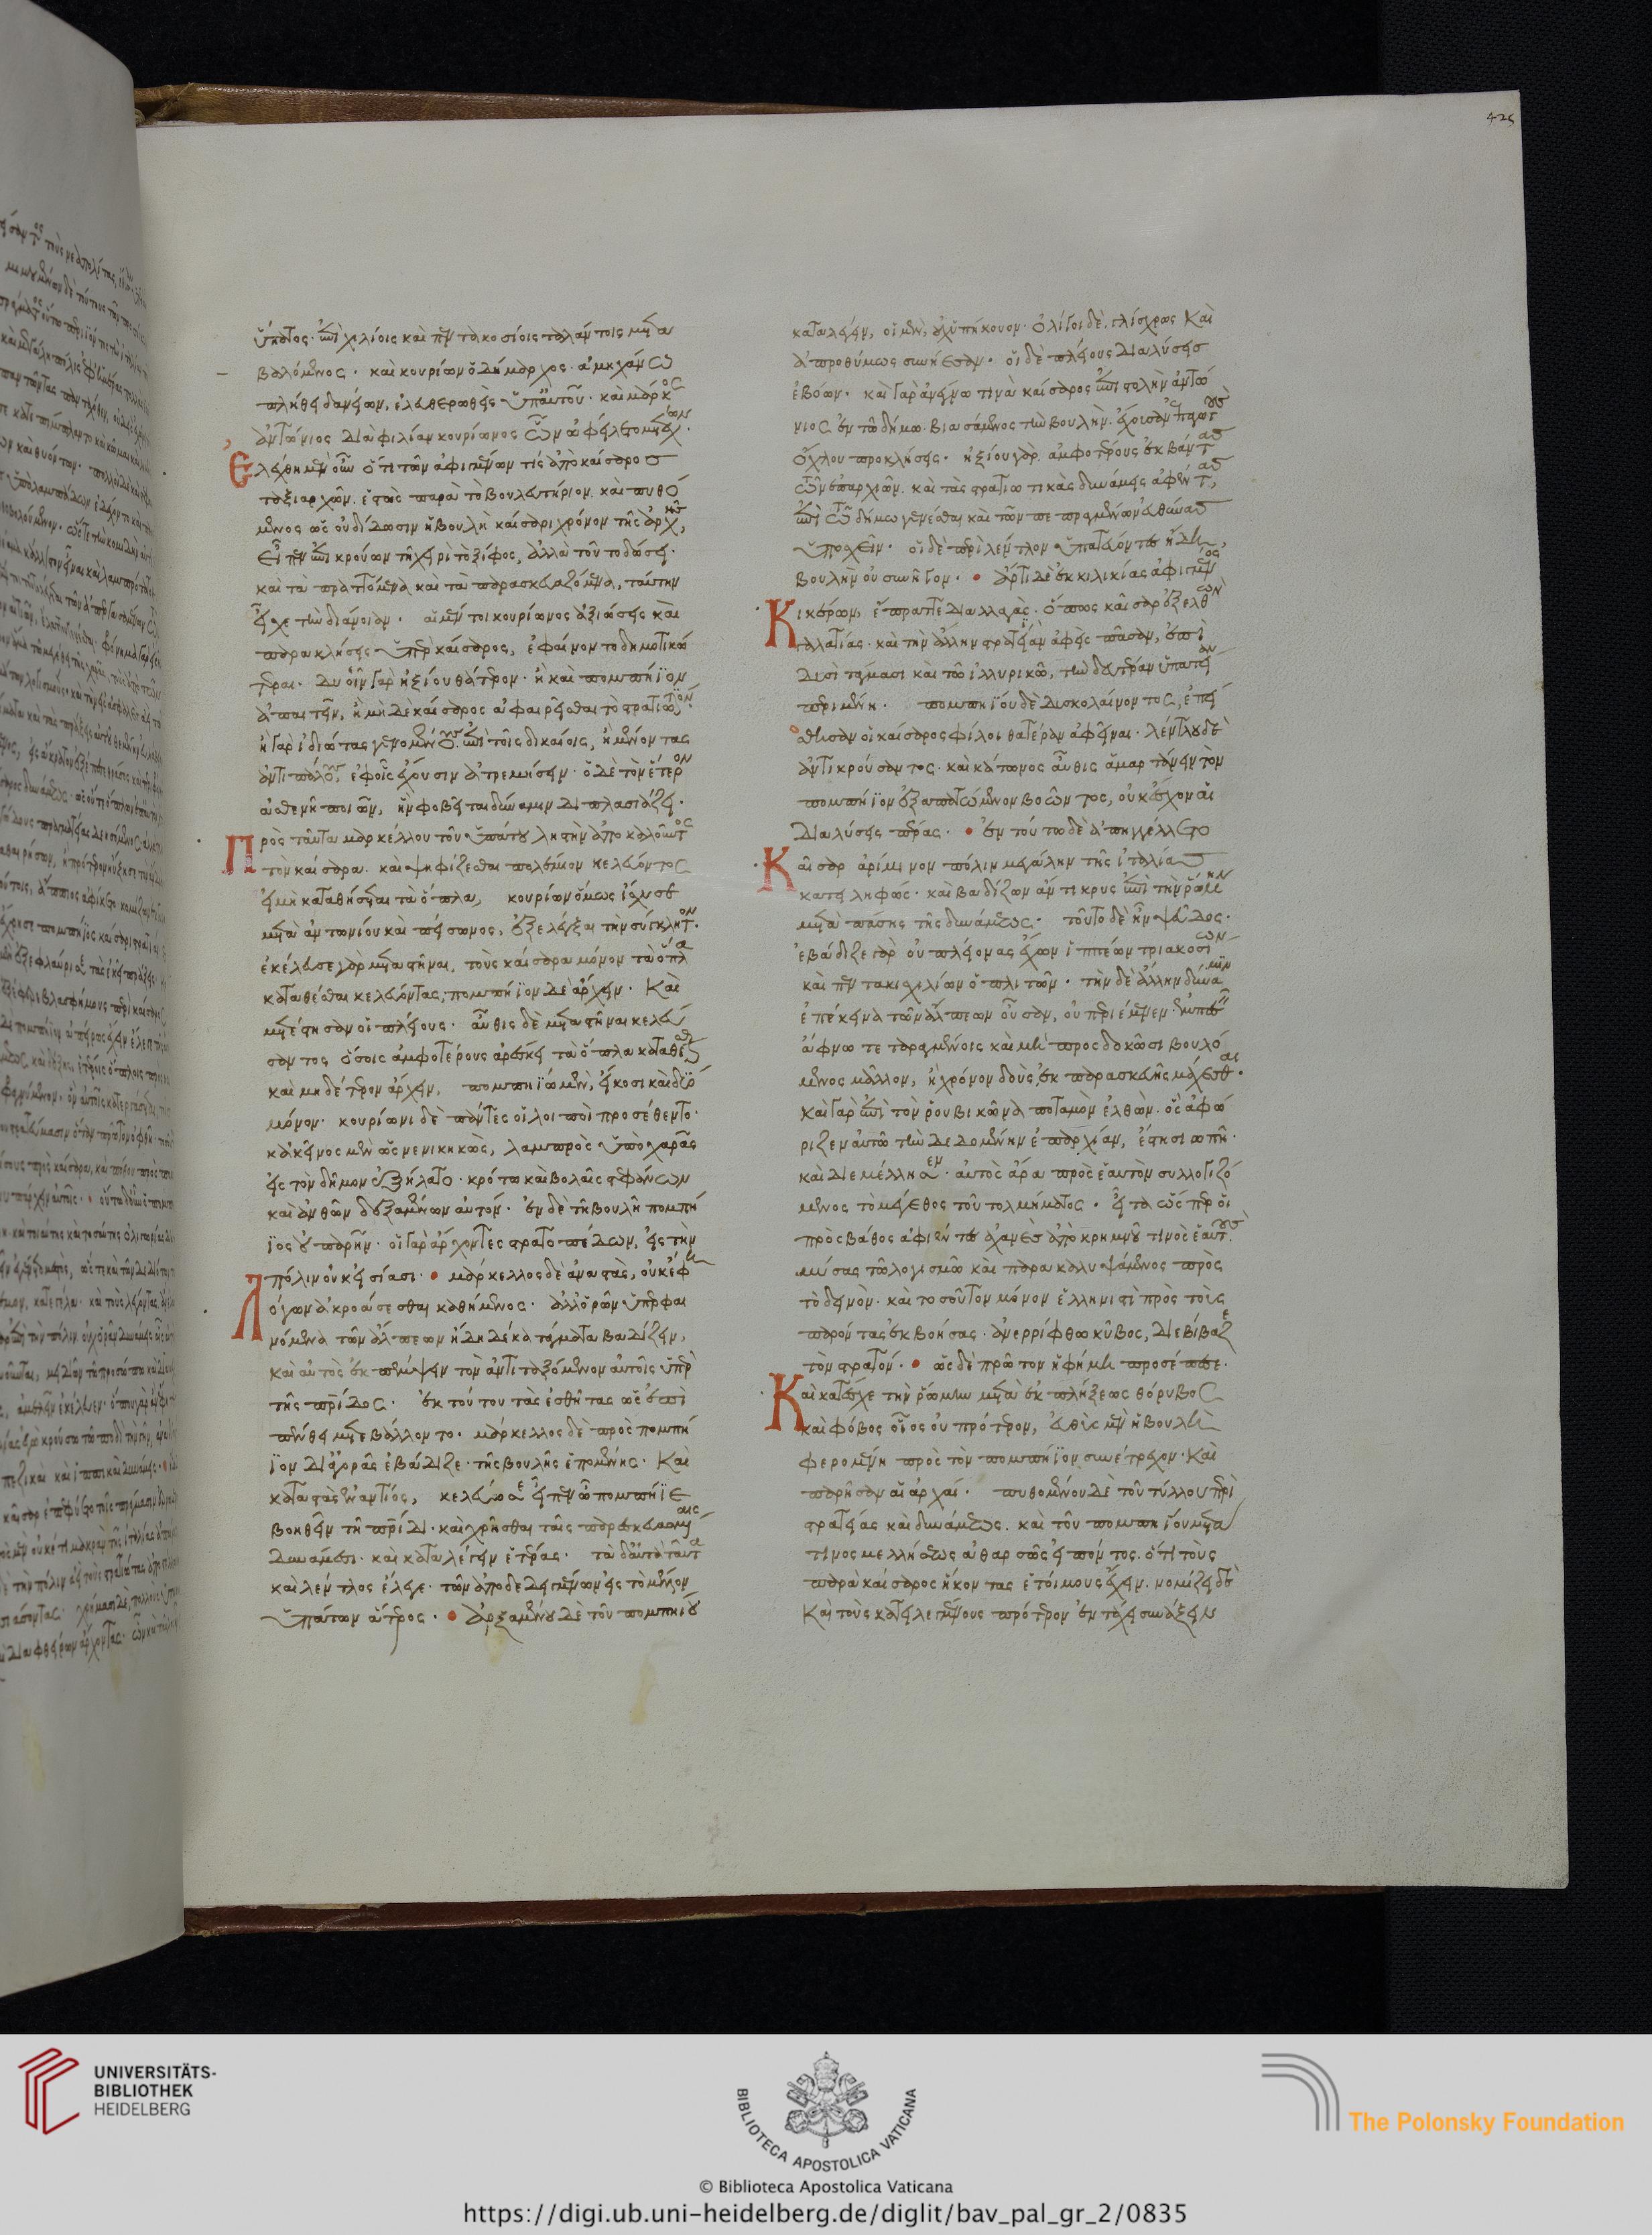 ὕπατος· ἐπὶ χιλίοις καὶ πεντακοσίοις ταλάντοις μετα
βαλόμενος· καὶ κουρίων ὁ δήμαρχος· ἀμηχάνω
πλήθει δανείων, ἐλευθερωθεὶς ὑπ αὐτοῦ· καὶ μάρκος
ἀντώνιος διὰ φιλίαν κουρίωνος ὧν ὠφέλετο μετέχων·
Ἐλέχθη μὲν οὖν ὅτι τῶν ἀφιγμένων τίς ἀπὸ καίσαρος
ταξιαρχῶν. ἑστὼς παρὰ τὸ βουλευτήριον. καὶ πυθό
μενος ὡς οὐ δίδωσιν ἡ βουλὴ καίσαρι χρόνον τῆς ἀρχῆς,
εἶπεν ἐπικρούων τῆ χειρὶ τὸ ξίφος, ἀλλὰ τοῦτο δώσει·
καὶ τὰ πραττόμενα καὶ τὰ παρασκευαζόμενα, ταύτην
εἶχε τὴν διάνοιαν· αἱ μέντοι κουρίωνος ἀξιώσεις καὶ
παρακλήσεις ὑπὲρ καίσαρος, ἐφαίνοντο δημοτικώ
τεραι· δυοῖν γὰρ ἠξίου θάτερον· ἢ καὶ πομπήϊον
ἀπαιτεῖν, ἢ μὴ δὲ καίσαρος ἀφαιρεῖσθαι τὸ στρατιωτικόν·
ἢ γὰρ ἰδιώτας γενομένους ἐπὶ τοῖς δικαίοις, ἢ μένοντας
ἀντιπάλους ἐφ οἷς ἔχουσιν ἀτρεμήσειν· ὁ δὲ τὸν ἕτερον
ἀσθενῆ ποιῶν, ἣν φοβεῖται δύναμιν διπλασιάζει·
Πρὸς ταῦτα μαρκέλλου τοῦ ὑπάτου ληστὴν ἀποκαλοῦντος
τὸν καίσαρα. καὶ ψηφίζεσθαι πολέμιον κελεύοντος
εἰ μὴ καταθήσεται τὰ ὅπλα, κουρίων ὅμως ἴσχυσε
μετὰ ἀντωνίου καὶ πείσωνος, ἐξελέγξαι τὴν σύγκλητον·
ἐκέλευσε γὰρ μεταστῆναι, τοὺς καίσαρα μόνον τὰ ὅπλα
καταθέσθαι κελεύοντας, πομπήϊον δὲ ἄρχειν· Καὶ
μετέστησαν οἱ πλείους· αὖθις δὲ μεταστῆναι κελεύ
σαντος ὅσοις ἀμφοτέρους ἀρέσκει τὰ ὅπλα καταθέσθαι
καὶ μηδέτερον ἄρχειν, πομπηίω μὲν, εἴκοσι καὶ δύο
μόνον· κουρίωνι δὲ πάντες οἱ λοιποὶ προσέθεντο·
κἀκεῖνος μὲν ὡς νενικηκὼς, λαμπρὸς ὑπὸ χαρᾶς
εἰς τὸν δῆμον ἐξήλατο· κρότω καὶ βολαῖς στεφάνων
καὶ ἀνθῶν δεξαμένων αὐτόν· ἐν δὲ τῆ βουλῆ πομπή
ϊος οὐ παρῆν· οἱ γὰρ ἄρχοντες στρατοπέδων, εἰς τὴν
πόλιν οὐκ εἰσίασι· μάρκελλος δὲ ἀναστὰς, οὐκ ἔφη
Λόγων ἀκροάσεσθαι καθήμενος· ἀλλ ὁρῶν ὑπερφαι
νόμενα τῶν ἄλπεων ἤδη δέκα τάγματα βαδίζειν,
καὶ αὐτὸς ἐκπέμψειν τὸν ἀντιταξόμενον αὐτοῖς ὑπὲρ
τῆς πατρίδος· ἐκ τούτου τὰς ἐσθῆτας ὡς ἐπὶ
πένθει μετεβάλλοντο· μάρκελλος δὲ πρὸς πομπή
ϊον δι ἀγορᾶς ἐβάδιζε· τῆς βουλῆς ἑπομένης· Καὶ
καταστὰς ἐναντίος, κελεύω σε εἶπεν ὦ πομπήϊε
βοηθεῖν τῆ πατρίδι· καὶ χρῆσθαι ταῖς παρεσκευασμέναις
δυνάμεσι· καὶ καταλέγειν ἑτέρας· τὰ δ αὐτὰ ταῦτα
καὶ λέντλος ἔλεγε· τῶν ἀποδεδειγμένων εἰς τὸ μέλλον
ὑπάτων ἅτερος· ἀρξαμένου δὲ τοῦ πομπηίου
καταλέγειν, οἱ μὲν, οὐχ ὑπήκουον· ὀλίγοι δὲ, γλίσχρως Καὶ
ἀπροθύμως συνήεσαν· οἱ δὲ πλείους διαλύσεις
ἐβόων· καὶ γὰρ ἀνέγνω τινὰ καίσαρος ἐπιστολὴν ἀντώ
νιος ἐν τῶ δήμω· βιασάμενος τὴν βουλήν· ἔχουσαν ἐπαγωγοὺς
ὄχλου προκλήσεις· ἠξίου γὰρ ἀμφοτέρους ἐκβάντας
τῶν ἐπαρχιῶν· καὶ τὰς στρατιωτικὰς δυνάμεις ἀφέντας,
ἐπὶ τῶ δήμω γενέσθαι καὶ τῶν πεπραγμένων εὐθύνας
ὑποσχεῖν· οἱ δὲ περὶ λέντλον ὑπατεύοντες ἤδη,
βουλὴν οὐ συνῆγον· ἄρτι δὲ ἐκ κιλικίας ἀφιγμένος
Κικέρων, ἔπραττε διαλλαγὰς· ὅπως καῖσαρ ἐξελθὼν
γαλατίας· καὶ τὴν ἄλλην στρατείαν ἀφεὶς πᾶσαν, ἐπὶ
δυσὶ τάγμασι καὶ τῶ ἰλλυρικῶ, τὴν δευτέραν ὑπατείαν
περιμένη· πομπηίου δὲ δυσκολαίνοντος, ἐπεί
σθησαν οἱ καίσαρος φίλοι θάτερον ἀφεῖναι· λέντλου δὲ
ἀντικρούσαντος· καὶ κάτωνος αὖθις ἁμαρτάνειν τὸν
πομπήϊον ἐξαπατώμενον βοῶντος, οὐκ ἔσχον αἱ
διαλύσεις πέρας· ἐν τούτω δὲ ἀπηγγέλλετο
Καῖσαρ ἀρίμινον πόλιν μεγάλην τῆς ἰταλίας
κατειληφὼς· καὶ βαδίζων ἄντικρυς ἐπὶ τὴν ῥώμην
μετὰ πάσης τῆς δυνάμεως· τοῦτο δὲ ἦν ψεῦδος·
ἐβάδιζε γὰρ οὐ πλείονας ἔχων ἱππέων τριακοσίων
καὶ πεντακισχιλίων ὁπλιτῶν· τὴν δὲ ἄλλην δύναμιν
ἐπέκεινα τῶν ἄλπεων οὖσαν, οὐ περιέμενεν· ἐμπεσεῖν
ἄφνω τεταραγμένοις καὶ μὴ προσδοκῶσι βουλό
μενος μᾶλλον, ἢ χρόνον δοὺς, ἐκ παρασκευῆς μάχεσθαι·
καὶ γὰρ ἐπὶ τὸν ῥουβικῶνα ποταμὸν ἐλθὼν· ὃς ἀφώ
ριζεν αὐτῶ τὴν δεδομένην ἐπαρχίαν, ἔστη σιωπῆ·
καὶ διεμέλλησεν· αὐτὸς ἄρα πρὸς ἑαυτὸν συλλογιζό
μενος τὸ μέγεθος τοῦ τολμήματος· εἶτα ὥσπερ οἱ
πρὸς βάθος ἀφιέντες ἀχανὲς ἀπὸ κρημνοῦ τινὸς ἑαυτοὺς
μύσας τῶ λογισμῶ καὶ παρακαλυψάμενος πρὸς
τὸ δεινόν· καὶ τοσοῦτον μόνον ἑλληνιστὶ πρὸς τοὺς
παρόντας ἐκβοήσας· ἀνερρίφθω κύβος, διεβίβαζε
τὸν στρατόν· ὡς δὲ πρῶτον ἡ φήμη προσέπεσε·
Καὶ κατέσχε τὴν ῥώμην μετὰ ἐκπλήξεως θόρυβος
καὶ φόβος οἷος οὐ πρότερον, εὐθὺς μὲν ἡ βουλὴ
φερομένη πρὸς τὸν πομπήϊον συνέτρεχον· Καὶ
παρῆσαν αἱ ἀρχαί· πυθομένου δὲ τοῦ τύλλου περὶ
στρατείας καὶ δυνάμεως. καὶ τοῦ πομπηίου μετά
τινος μελλήσεως ἀθαρσῶς εἰπόντος. ὅτι τοὺς
παρὰ καίσαρος ἥκοντας ἑτοίμους ἔχειν. νομίζει δὲ
Καὶ τοὺς κατειλεγμένους πρότερον ἐν τάχει συνάξειν
UNIVERSITÄTS-
BIBLIOTHEK
HEIDELBERG
BIBLIOTECA APOSTOLICA VATICANA
The Polonsky Foundation
© Biblioteca Apostolica Vaticana
https://digi.ub.uni-heidelberg.de/diglit/bav_pal_gr_2/0835